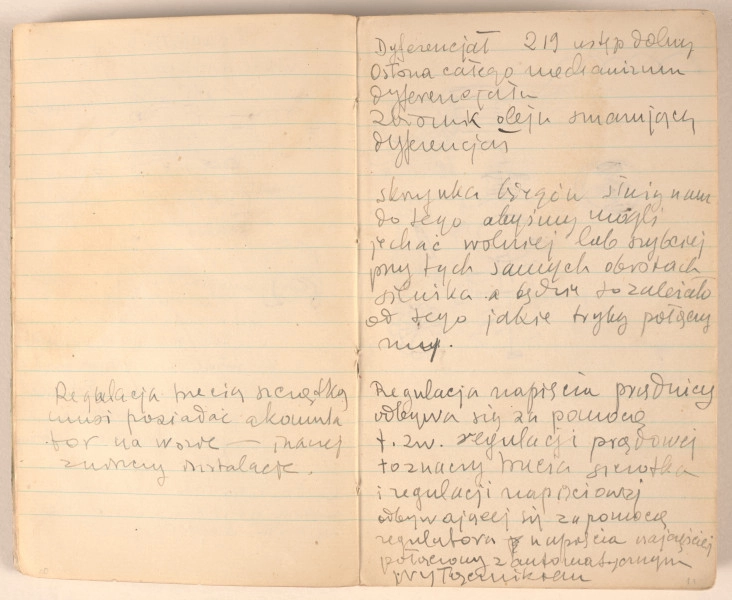 Regulacja trzecią szczotką
musi posiadać akomula
tor na wozie — inaczej
zniszczy instalację.
Dyferencjał 219 ustęp dolny
Osłona całego mechanizmu
dyferencjału
Zbiornik oleju smarujący
dyferencjał
skrzynka biegów służy nam
do tego abyśmy mogli
jechać wolniej lub szybciej
przy tych samych obrotach
silnika a będzie to zależało
od tego jakie tryby połączy
my.
Regulacja napięcia prądnicy
odbywa się za pomocą
t. zw. regulacji prądowej
to znaczy trzecia szczotka
i regulacji napięciowej
odbywającej się za pomocą
regulatora napięcia najczęściej
połączony z automatycznym
wyłącznikiem